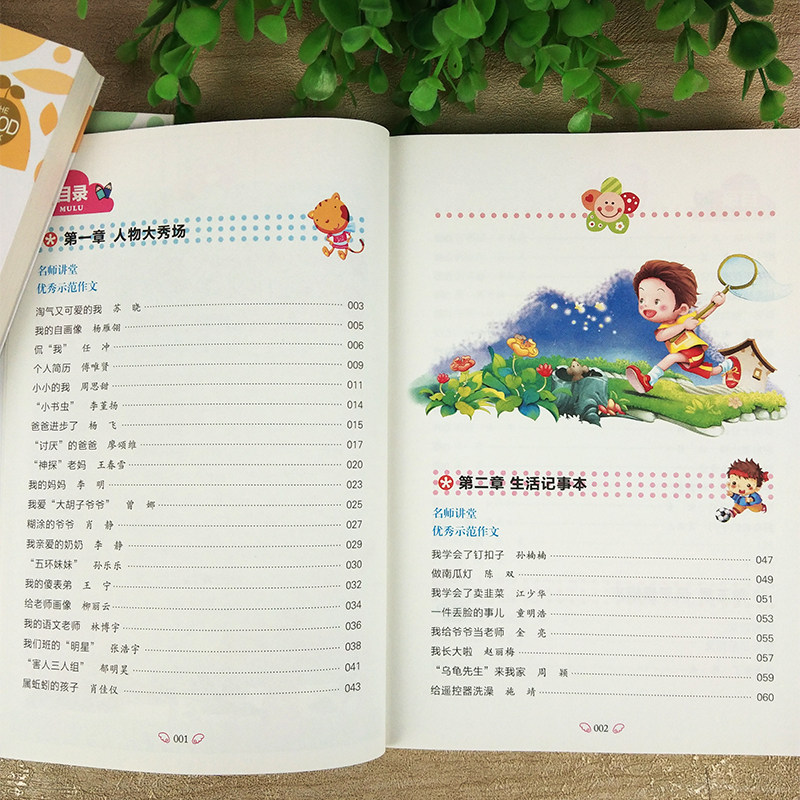 THE
目录
MULU
第一章 人物大秀场
名师讲堂
优秀示范作文
淘气又可爱的我 苏 晓 003
我的自画像 杨雁翎 005
侃“我” 任 冲 006
个人简历 傅唯贤 009
小小的我 周思甜 011
“小书虫” 李堇扬 014
爸爸进步了 杨 飞 015
“讨厌”的爸爸 廖颂维 017
“神探”老妈 王春雪 020
我的妈妈 李 明 023
我爱“大胡子爷爷” 曾 娜 025
糊涂的爷爷 肖 静 027
我亲爱的奶奶 李 静 029
“五环妹妹” 孙乐乐 030
我的傻表弟 王 宁 032
给老师画像 柳丽云 034
我的语文老师 林博宇 036
我们班的“明星” 张浩宇 038
“害人三人组” 郝明昊 041
属蚯蚓的孩子 肖佳仪 043
001
第二章 生活记事本
名师讲堂
优秀示范作文
我学会了钉扣子 孙楠楠 047
做南瓜灯 陈 双 049
我学会了卖韭菜 江少华 051
一件丢脸的事儿 童明浩 053
我给爷爷当老师 金 亮 055
我长大啦 赵丽梅 057
“乌龟先生”来我家 周 颖 059
给遥控器洗澡 施 靖 060
002